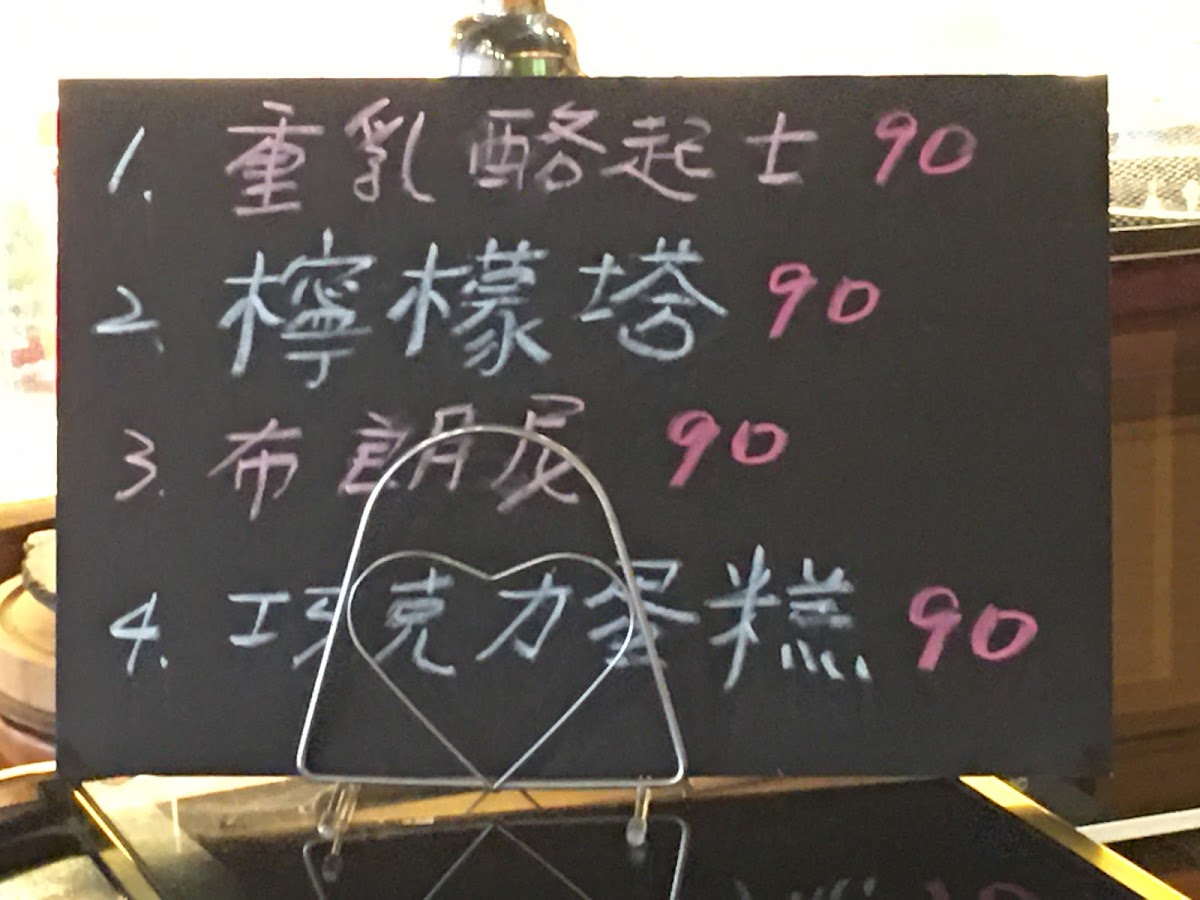 1. 重乳酪起士 90
2. 檸檬塔 90
3. 布朗尼 90
4. 巧克力蛋糕 90